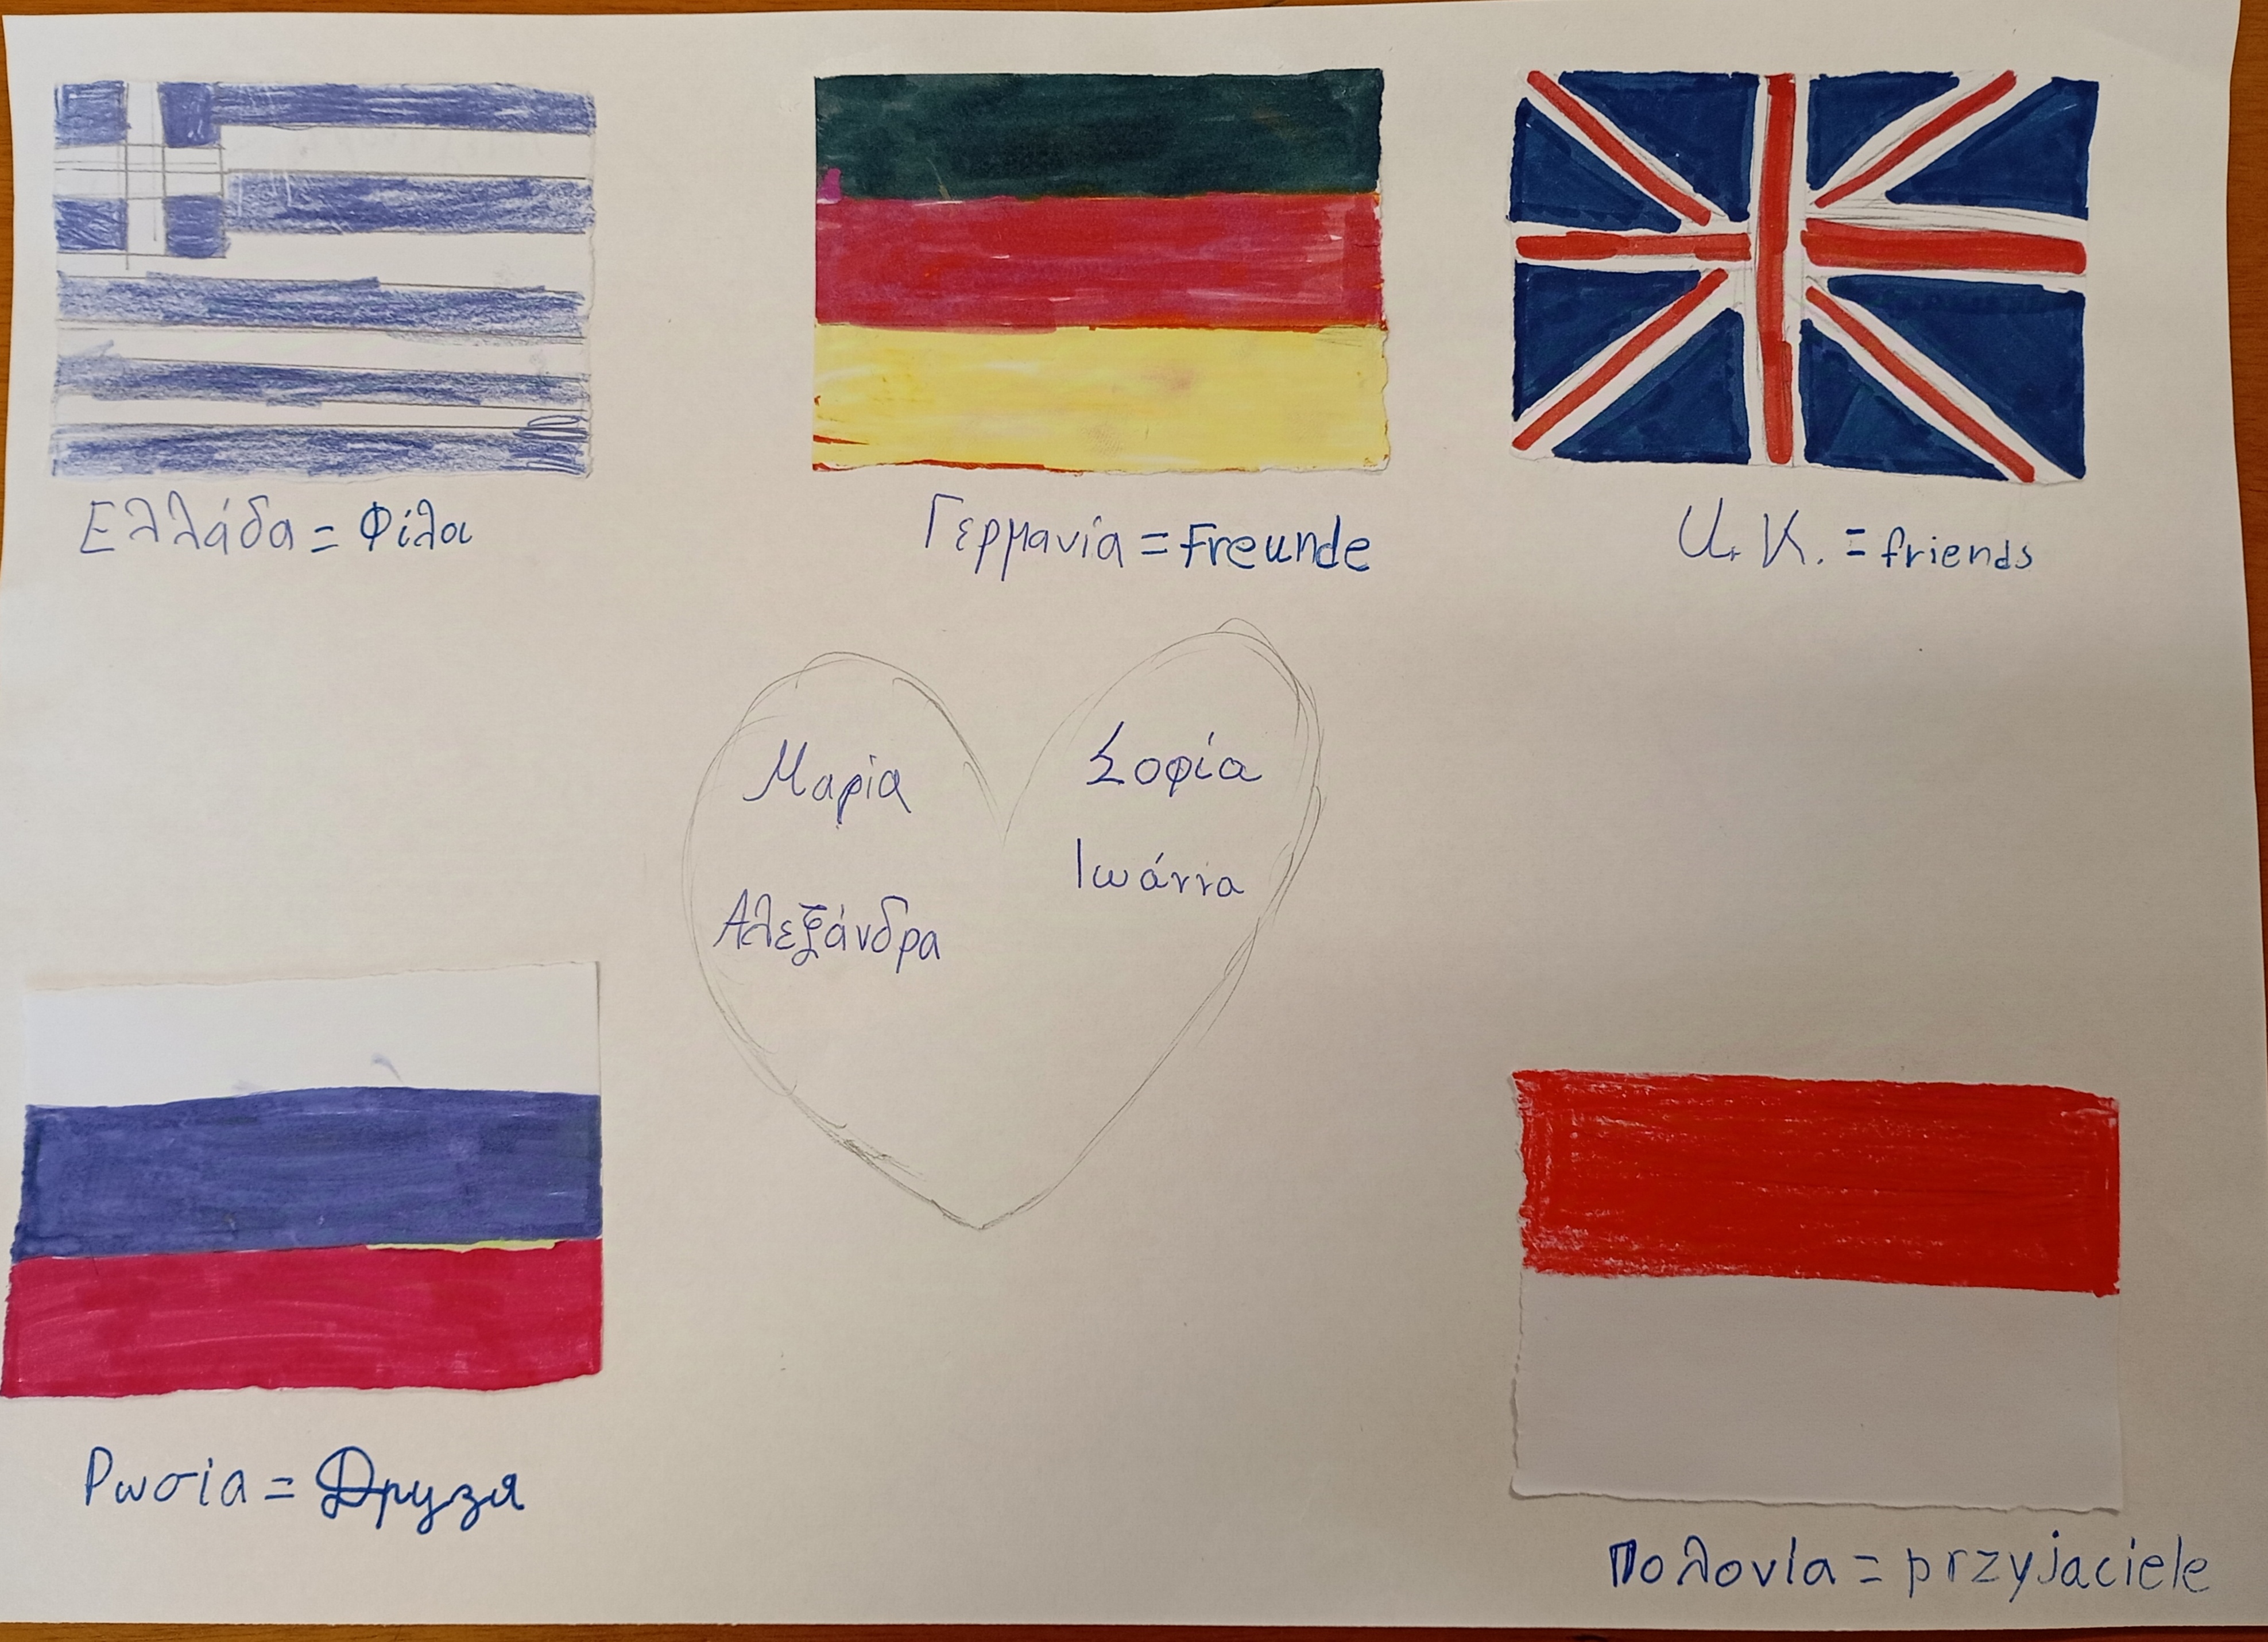 Ελλάδα = Φίλοι
Γερμανία = Freunde
U.K. = friends
Μαρία
Σοφία
Ιωάννα
Αλεξάνδρα
Ρωσία = Друзя
Πολονία = przyjaciele